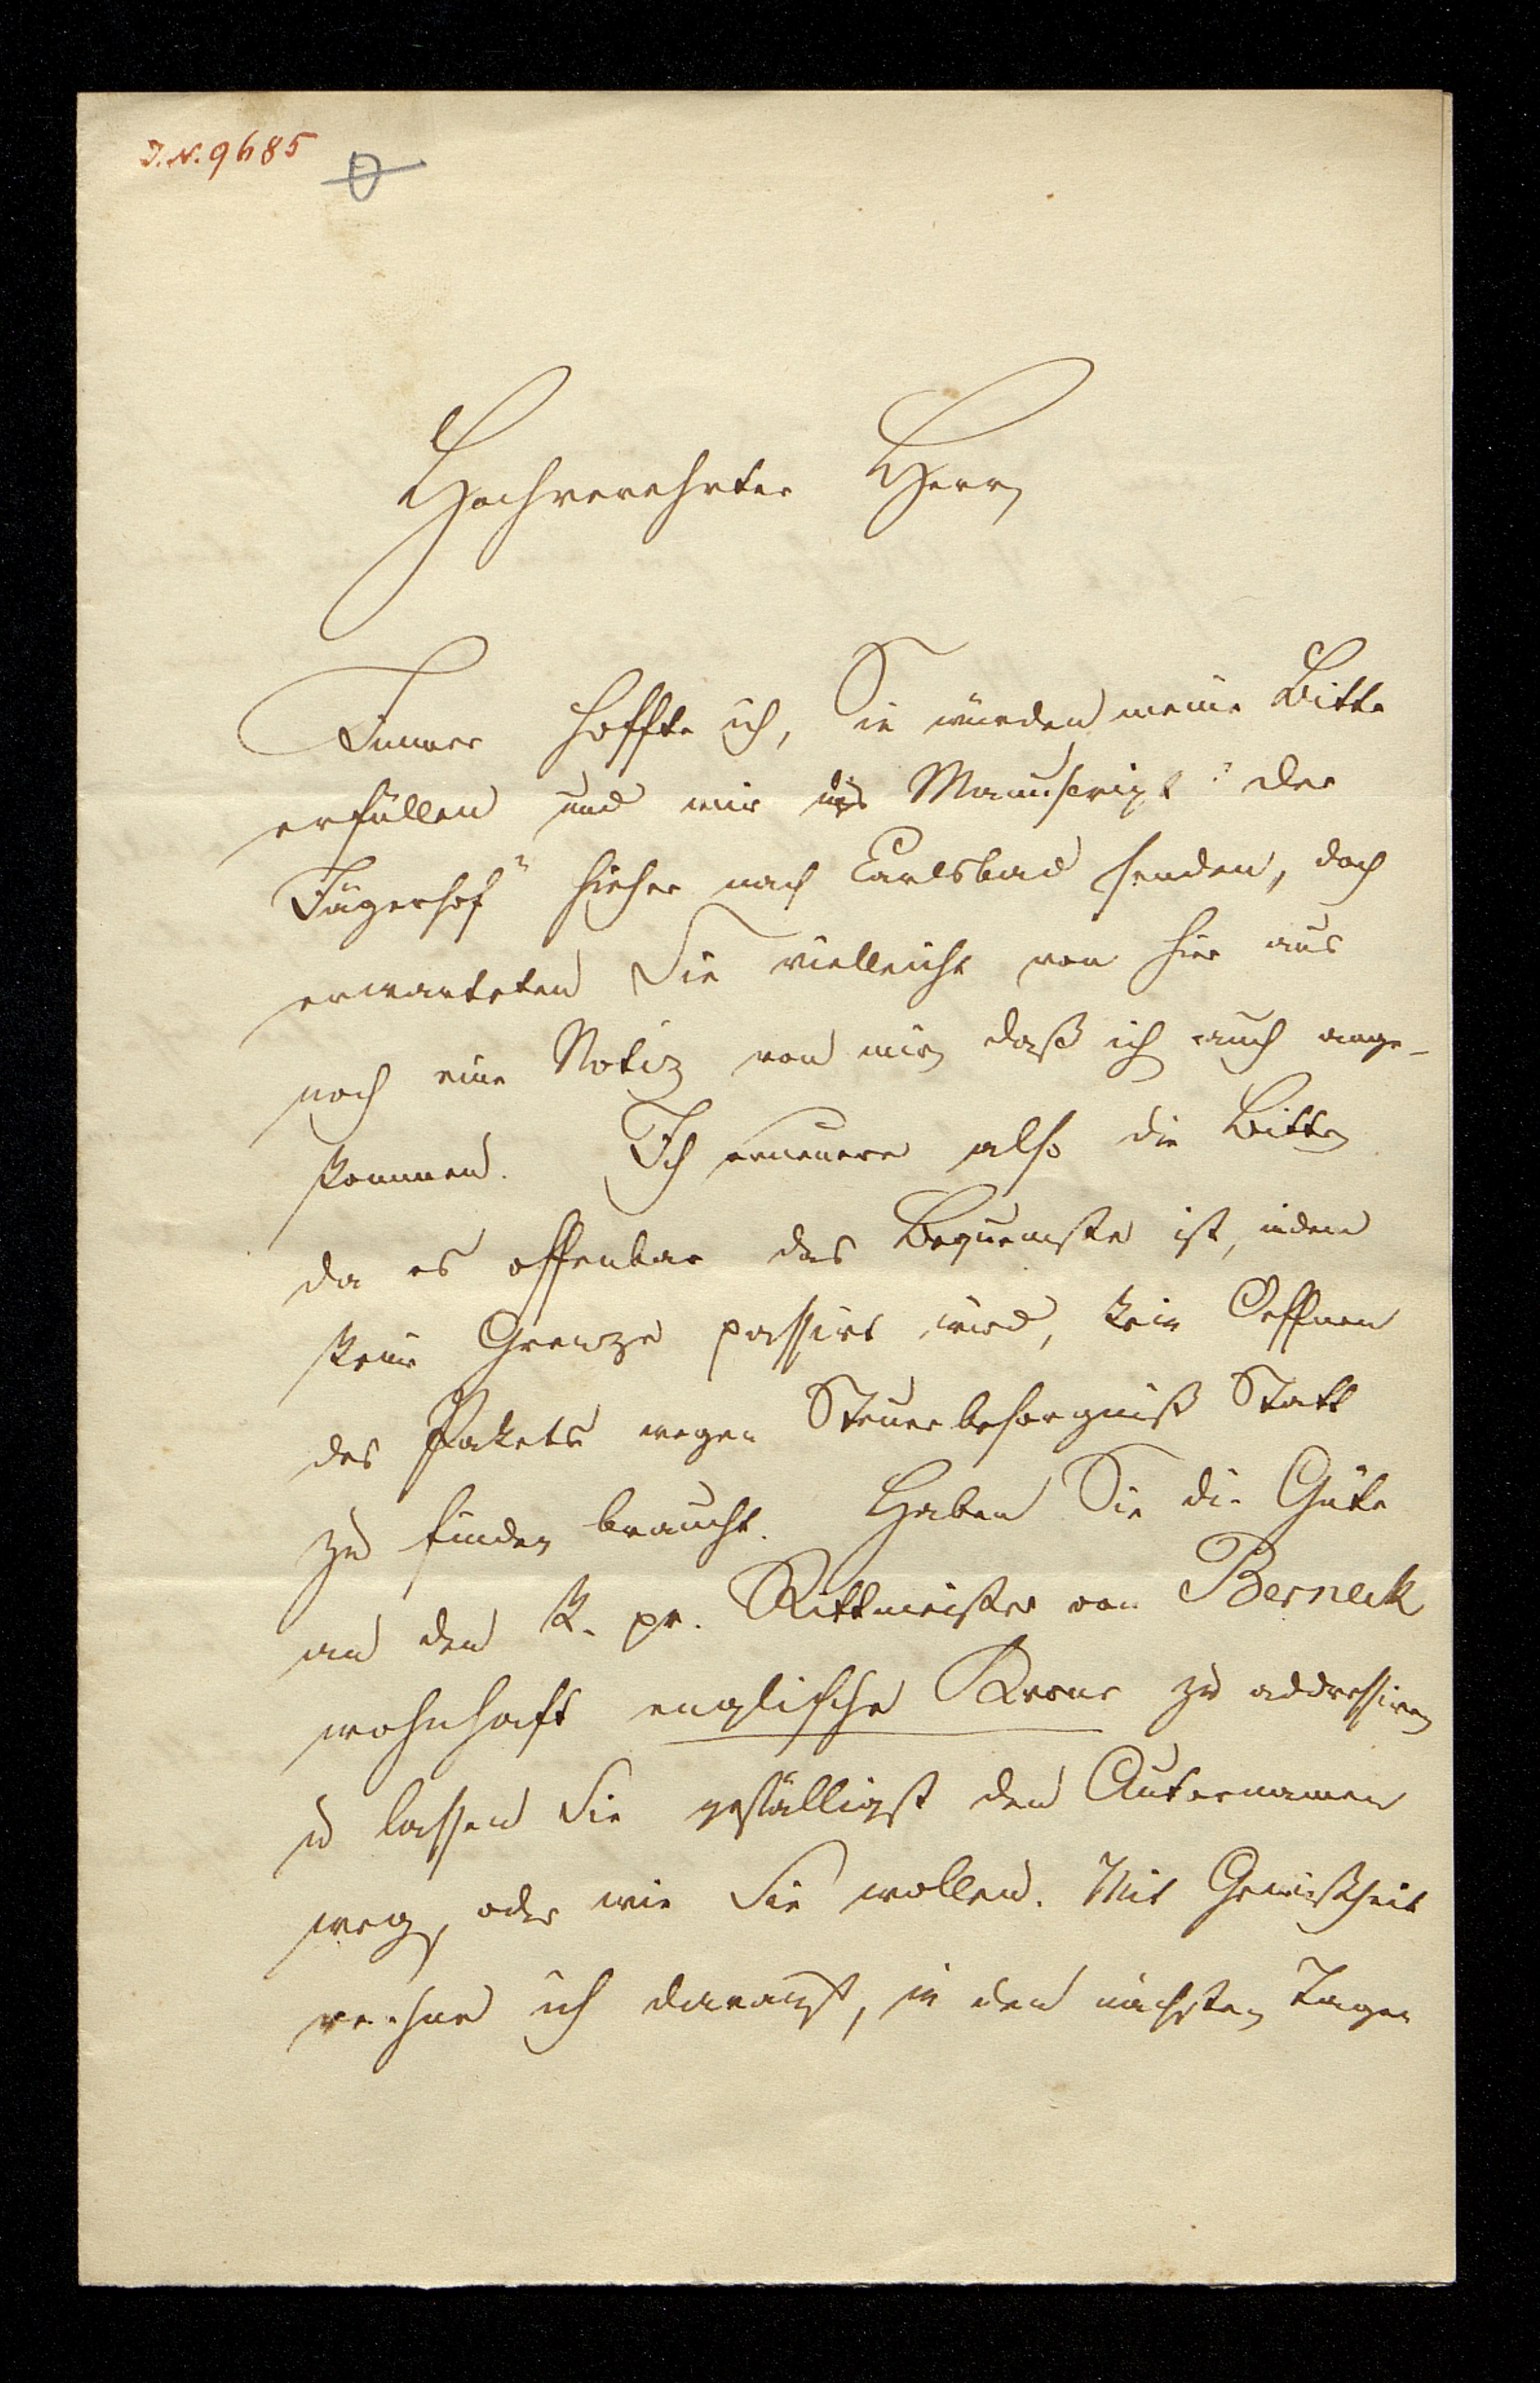 I.N. 9685
Hochverehrter Herr,
Immer hoffte ich, Sie würden meine Bitte
erfüllen und mir das Manuscript "der
Jägerhof" hieher nach Carlsbad senden, doch
erwarteten Sie vielleicht von hier aus
noch eine Notiz von mir, daß ich auch ange-
kommen. Ich erneuere also die Bitte,
da es offenbar das Bequemste ist, indem
keine Grenze passirt wird, kein Oeffnen
des Pakets wegen Steuerbesorgniß Statt
zu finden braucht. Haben Sie die Güte
an den K. pr. Rittmeister von Berneck
wohnhaft englische Krone zu addressiren
u lassen Sie gefälligst den Autornamen
weg, oder wie Sie wollen. Mit Gewißheit
rechne ich darauf, in den nächsten Tagen